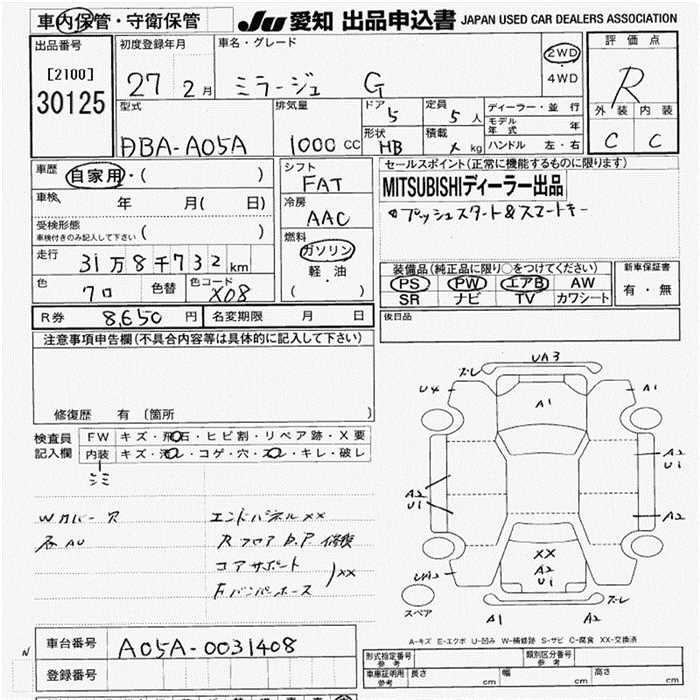 車内保管・守衛保管
JU 愛知 出品申込書 JAPAN USED CAR DEALERS ASSOCIATION
出品番号 [2100] 30125
初度登録年月 27 2月
車名・グレード ミラージュ G
2WD・4WD
評価点 R
外装 内装
C C
型式 DBA-A05A
排気量 1000 CC
ドア 5
形状 HB
定員 5人
積載 kg
ディーラー・並行
モデル年式 年
ハンドル 左・右
車歴 自家用・( )
車検 年 月( 日)
受検形態 ( )
車検付きのみ記入して下さい
走行 31万8千732km
色 クロ 色替 色コード X08
シフト FAT
冷房 AAC
燃料 ガソリン
軽・油
( )
セールスポイント(正常に機能するものに限ります)
MITSUBISHIディーラー出品
プッシュスタート&スマートキー
装備品(純正品に限り○をつけてください)
PS PW エアB AW
SR ナビ TV カワシート
新車保証書
有・無
後日品
R券 8,650円 名変期限 月 日
注意事項申告欄(不具合内容等は具体的に記入して下さい)
修復歴 有 〔箇所 〕
検査員記入欄
FW キズ・飛石・ヒビ割・リペア跡・X要
内装 キズ・汚レ・コゲ・穴・スレ・キレ・破レ
シミ
Wカバー穴
エンドパネルXX
RフロアD.P修復
コアサポート
Fバンパホース
XX
ズレ UA3
U4 A1 A1
A2 U1
A2 U1
A2
XX
A2
U1
スペア
A1 A2 ズレ
A-キズ E-エクボ U-凹み W-補修跡 S-サビ C-腐食 XX-交換済
車台番号 A05A-0031408
登録番号
形式指定番号 参考
類別区分番号 参考
車庫証明用 参考 長さ cm 幅 cm 高さ cm